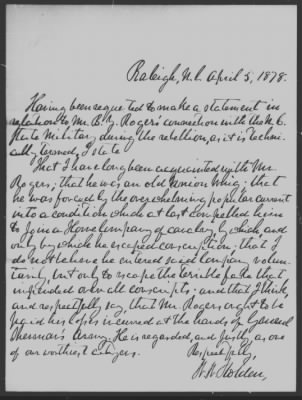 Raleigh, N.C. April 5, 1878.
Having been requested to make a statement in
relation to Mr. B. Y. Rogers' connection with the N.C.
State Military during the rebellion, as it is techni-
cally termed, I state
That I have long been acquainted with Mr.
Rogers; that he was an old Union Whig; that
he was forced by the overwhelming popular current
into a condition which at last compelled him
to join a Home Company of cavalry by which, and
only by which he escaped conscription; that I
do not believe he entered said company volun-
tarily, but only to escape the terrible fate that
impended over all conscripts; and that I think,
and respectfully say, that Mr. Rogers ought to be
paid his losses incurred at the hands of General
Sherman's Army. He is regarded, and justly, as one
of our worthiest citizens.
Respectfully,
W. W. Holden,